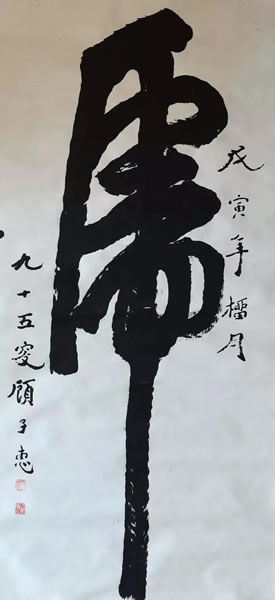 虎
戊寅年榴月
九十五叟顾子惠